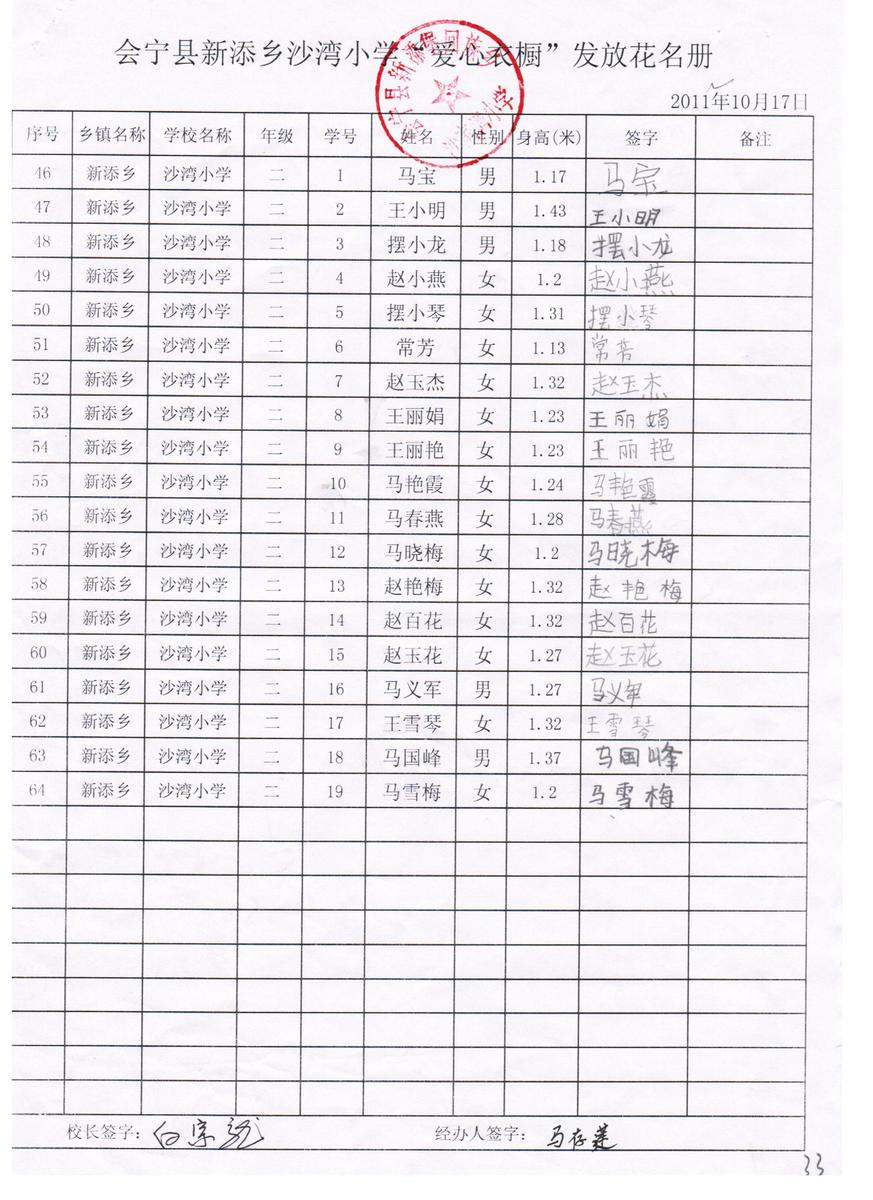 会宁县新添乡沙湾小学“爱心衣橱”发放花名册
2011年10月17日
序号 乡镇名称 学校名称 年级 学号 姓名 性别 身高(米) 签字 备注
46 新添乡 沙湾小学 二 1 马宝 男 1.17 马宝
47 新添乡 沙湾小学 二 2 王小明 男 1.43 王小明
48 新添乡 沙湾小学 二 3 摆小龙 男 1.18 摆小龙
49 新添乡 沙湾小学 二 4 赵小燕 女 1.2 赵小燕
50 新添乡 沙湾小学 二 5 摆小琴 女 1.31 摆小琴
51 新添乡 沙湾小学 二 6 常芳 女 1.13 常芳
52 新添乡 沙湾小学 二 7 赵玉杰 女 1.32 赵玉杰
53 新添乡 沙湾小学 二 8 王丽娟 女 1.23 王丽娟
54 新添乡 沙湾小学 二 9 王丽艳 女 1.23 王丽艳
55 新添乡 沙湾小学 二 10 马艳霞 女 1.24 马艳霞
56 新添乡 沙湾小学 二 11 马春燕 女 1.28 马春燕
57 新添乡 沙湾小学 二 12 马晓梅 女 1.2 马晓梅
58 新添乡 沙湾小学 二 13 赵艳梅 女 1.32 赵艳梅
59 新添乡 沙湾小学 二 14 赵百花 女 1.32 赵百花
60 新添乡 沙湾小学 二 15 赵玉花 女 1.27 赵玉花
61 新添乡 沙湾小学 二 16 马义军 男 1.27 马义军
62 新添乡 沙湾小学 二 17 王雪琴 女 1.32 王雪琴
63 新添乡 沙湾小学 二 18 马国峰 男 1.37 马国峰
64 新添乡 沙湾小学 二 19 马雪梅 女 1.2 马雪梅
校长签字： 经办人签字： 马存莲
33